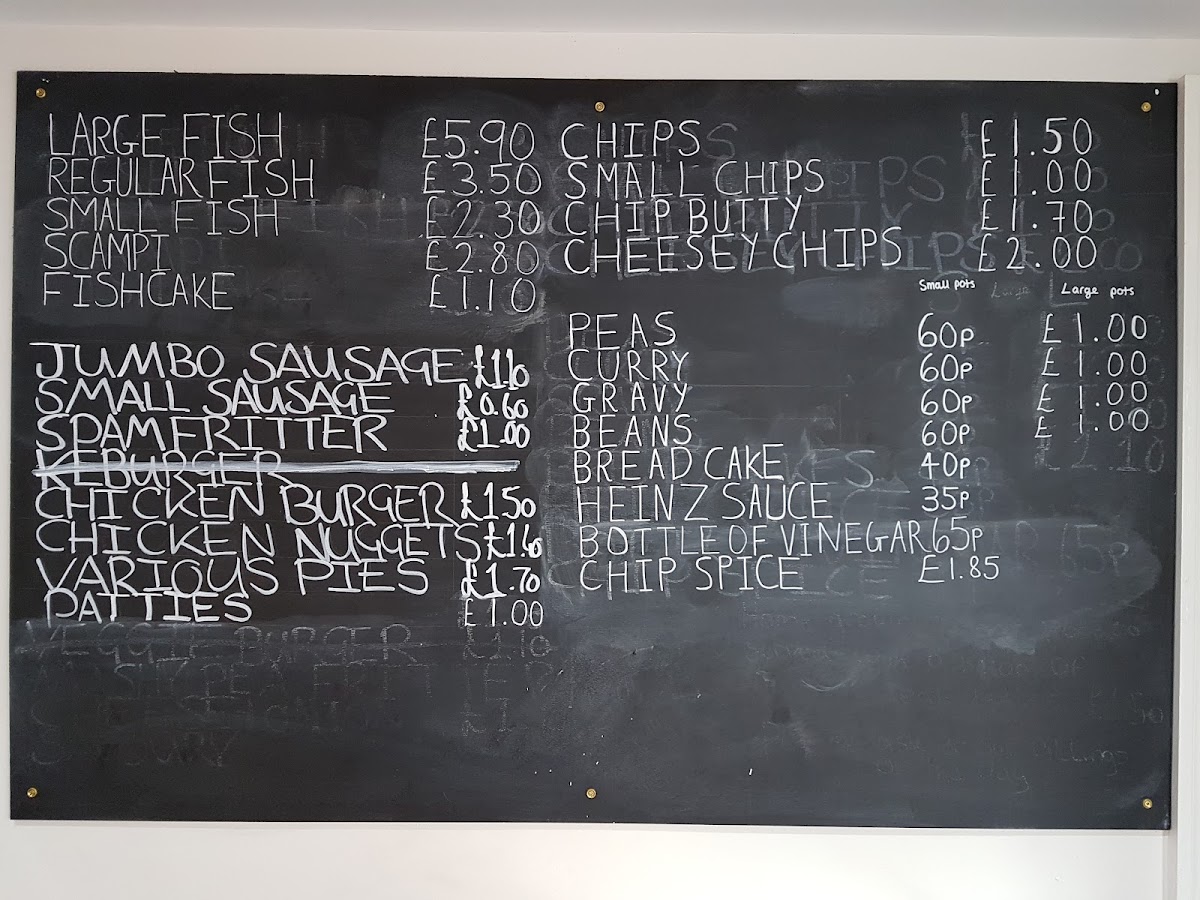 LARGE FISH £5.90
REGULAR FISH £3.50
SMALL FISH £2.30
SCAMPI £2.80
FISHCAKE £1.10
JUMBO SAUSAGE £1.10
SMALL SAUSAGE £0.60
SPAM FRITTER £1.00
KEBURGER
CHICKEN BURGER £1.50
CHICKEN NUGGETS £1.60
VARIOUS PIES £1.70
PATTIES £1.00
VEGGIE BURGER £1.10
CHIPS £1.50
SMALL CHIPS £1.00
CHIP BUTTY £1.70
CHEESEY CHIPS £2.00
Small pots Large pots
PEAS 60p £1.00
CURRY 60p £1.00
GRAVY 60p £1.00
BEANS 60p £1.00
BREAD CAKE 40p
HEINZ SAUCE 35p
BOTTLE OF VINEGAR 65p
CHIP SPICE £1.85